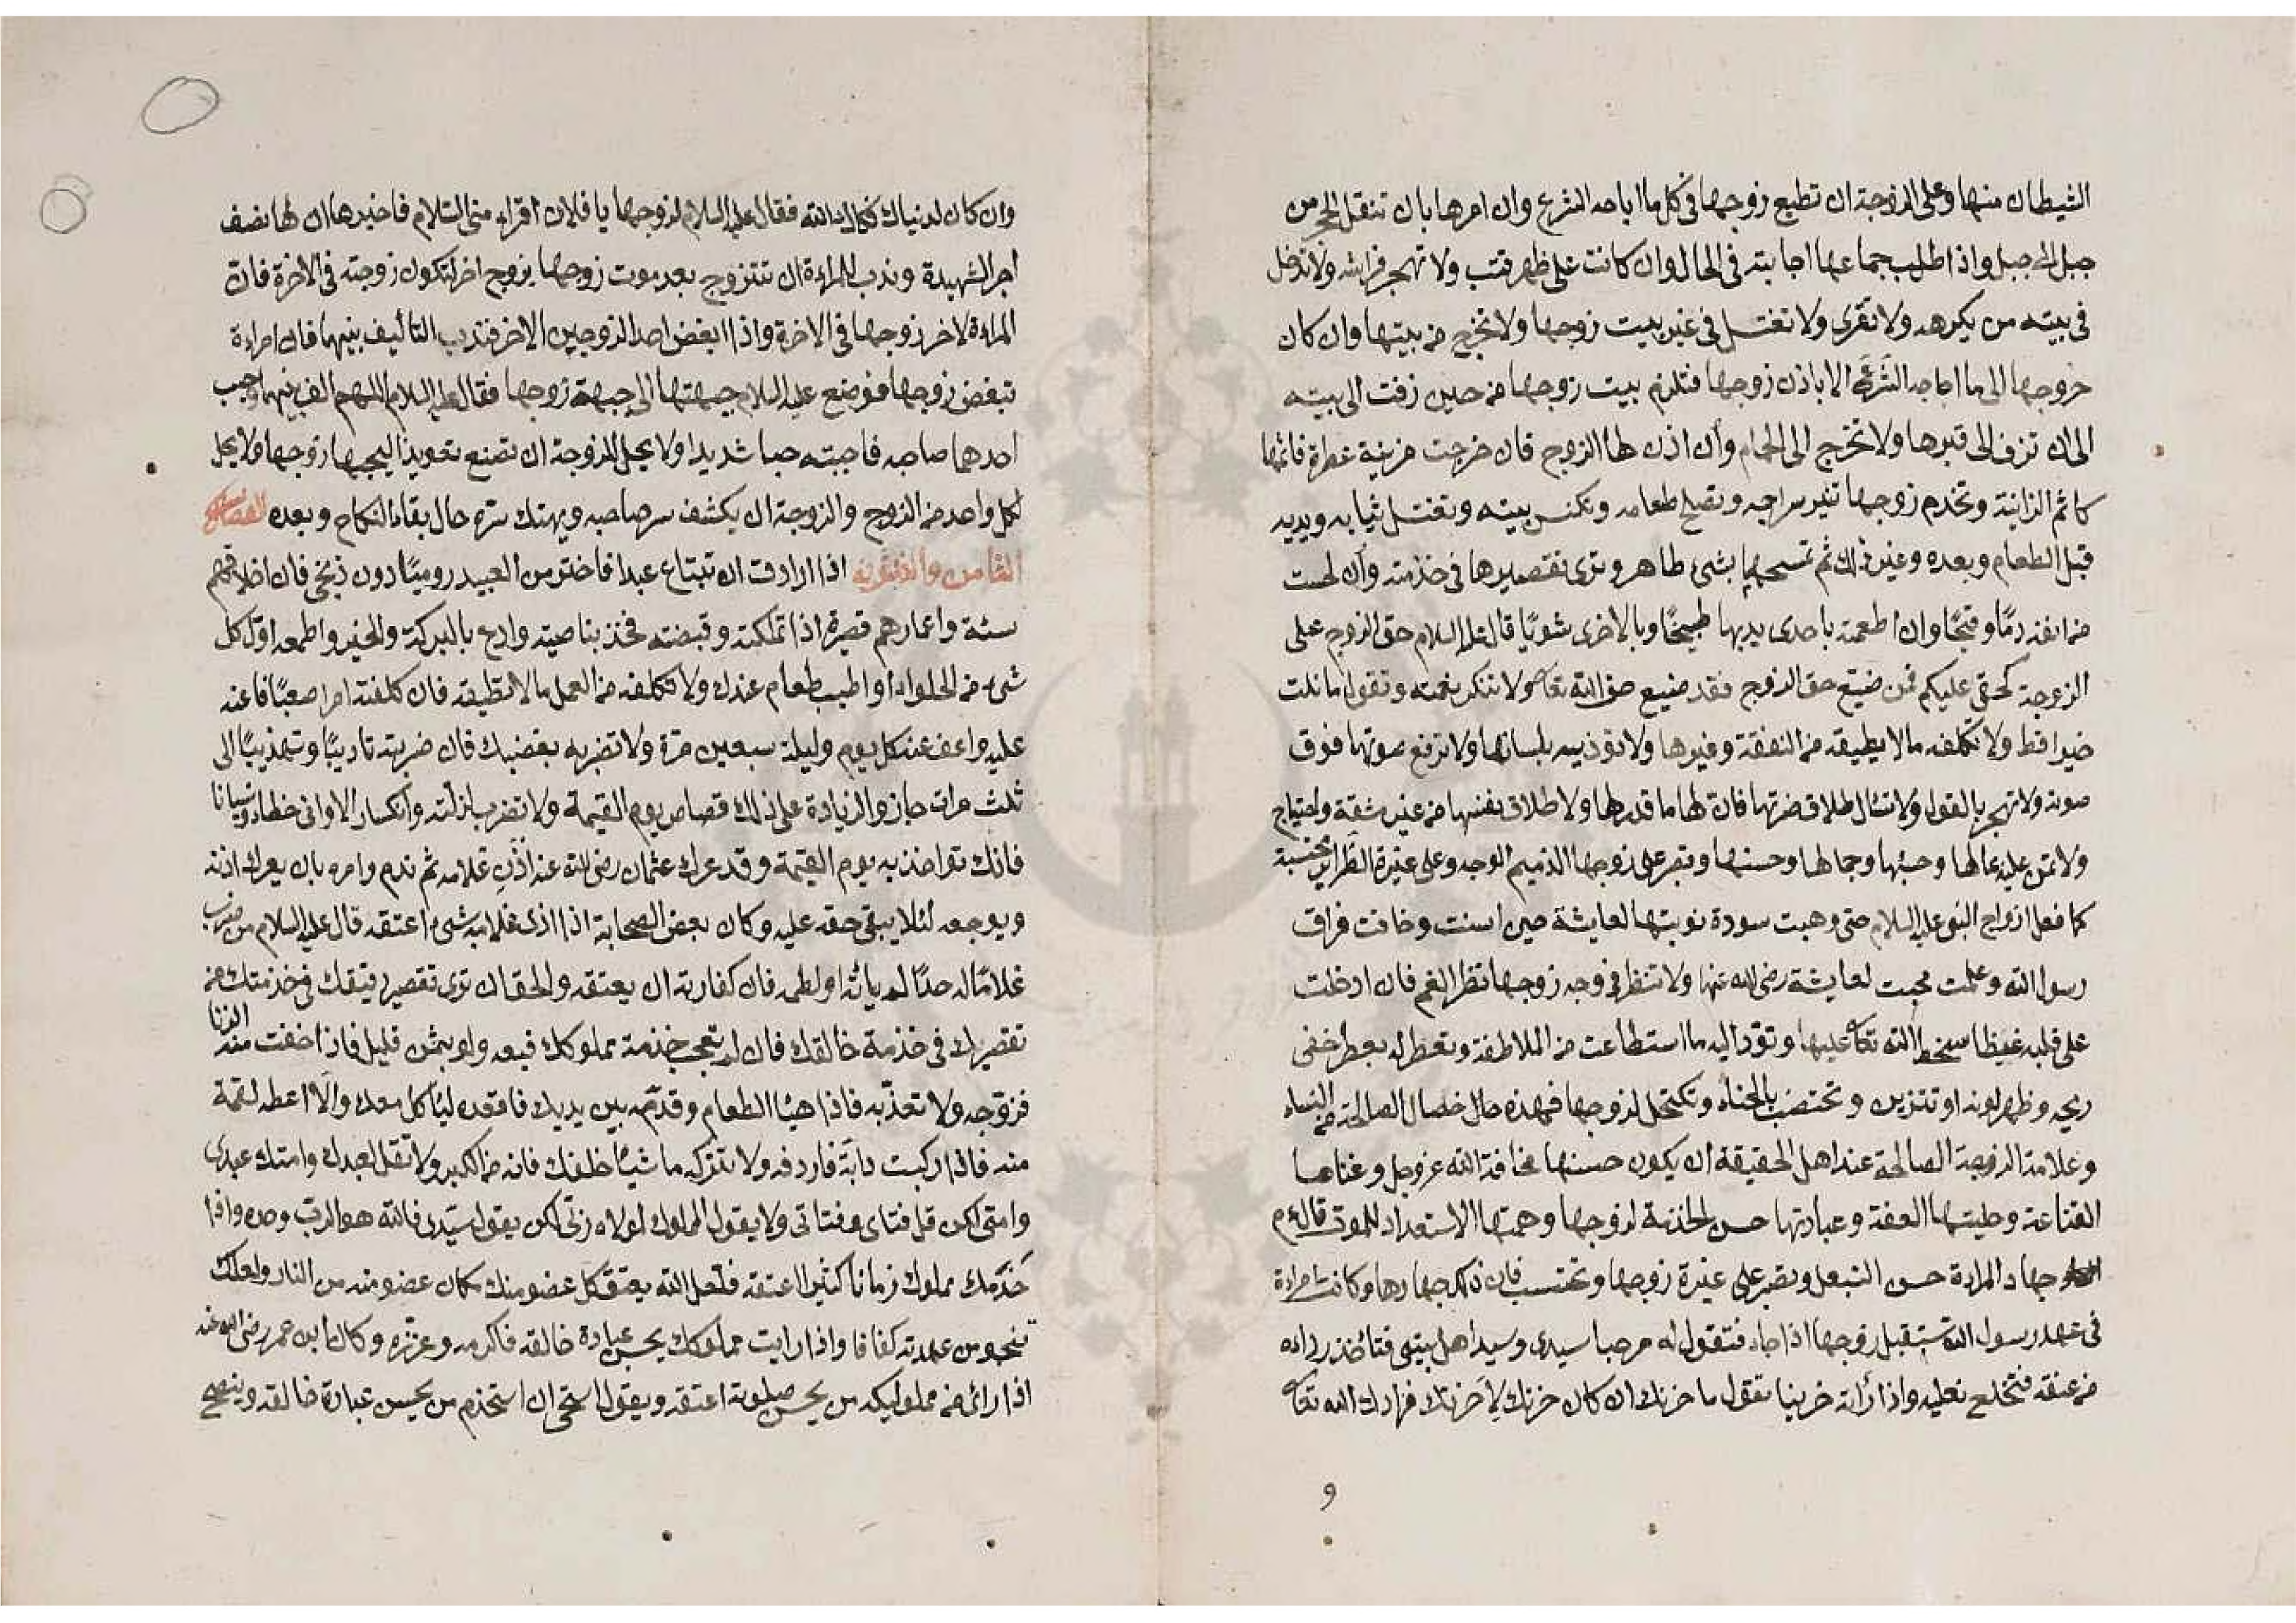 الشيطان منها وعلى الزوجة ان تطيع زوجها فى كل ما اباحه الشرع وان امرها بان تنقل الحجر من
جبل الى جبل واذا طلب جماعها اجابته فى الحال وان كانت على ظهر قتب ولا تهجر فراشه ولا تدخل
فى بيته من يكرهه ولا تقرى ولا تغتسل فى غير بيت زوجها ولا تخرج من بيتها وان كان
خروجها الى ما اباحه الشرع الا باذن زوجها فتلزم بيت زوجها من حين زفت الى بيته
الى ان تزف الى قبرها ولا تخرج الى الحمام وان اذن لها الزوج فان خرجت مزينة عطرة فاثمها
كاثم الزانية وتخدم زوجها تنير سراجه وتصلح طعامه وتكنس بيته وتغتسل ثيابه ويديه
قبل الطعام وبعده وغير ذلك ثم تمسحهما بشئ طاهر وترى تقصيرها فى خدمته وان لحست
من انفه دمًا وقيحًا وان اطعمته باحدى يديها طبيخًا وبالاخرى شويًا قال عليه السلام حق الزوج على
الزوجة كحقى عليكم فمن ضيع حق الزوج فقد ضيع حق الله تعالى ولا تنكر نعمته وتقول ما نلت
خيرا قط ولا تكلفه ما لا يطيقه من النفقة وغيرها ولا تؤذيه بلسانها ولا ترفع صوتها فوق
صوته ولا تهجر بالقول ولا تسأل طلاق ضرتها فان لها ما قدر لها ولا طلاق نفسها من غير مشقة واحتياج
ولا تمن عليه بمالها وحبها وجمالها وحسنها وتصبر على زوجها الذميم الوجه وعلى غيرة الضراير محتسبة
كما فعل ازواج النبى عليه السلام حتى وهبت سودة نوبتها لعايشة حين اسنت وخافت فراق
رسول الله وعلمت محبته لعايشة رضى الله عنها ولا تنظر فى وجه زوجها نظر الغم فان ادخلت
على قلبه غيظا سخط الله تعالى عليها وتودّ اليه ما استطاعت من الملاطفة وتعطر له بعطر خفى
ريحه وظهر لونه او تتزين وتختضب بالحناء وتكتحل لزوجها فهذه حال خصال الصالحة من النساء
وعلامة الزوجة الصالحة عند اهل الحقيقة ان يكون حسنها مخافة الله عز وجل وغناها
القناعة وحليتها العفة وعبادتها حسن الخدمة لزوجها وهمتها الاستعداد للموت قال ء م
جهاد المراءة حسن التبعل وتصبر على غيرة زوجها وتحتسب فان ذلك جهادها وكانت امراءة
فى عهد رسول الله تستقبل زوجها اذا جاء فتقول له مرحبا سيدى وسيد اهل بيتى فتأخذ رداءه
من عنقه فتخلع نعليه واذا رأته حزينا تقول ما حزنك ان كان حزنك لآخرتك فزادك الله تعالى
و
وان كان لدنياك فكفاك الله فقال عليه السلام لزوجها يا فلان اقراء منى السلام فاخبرها ان لها نصف
اجر الشهيدة وندب للمراءة ان تتزوج بعد موت زوجها بزوج اخر لتكون زوجته فى الاخرة فان
المراءة لاخر زوجها فى الاخرة واذا ابغض احد الزوجين الاخر فندب التأليف بينهما فان امراءة
تبغض زوجها فوضع عليه السلام جبهتها الى جبهة زوجها فقال عليه السلام اللهم الف بينهما وحبب
احدهما صاحبه فاحبته حبا شديدا ولا يحل للزوجة ان تصنع تعويذا ليحبها زوجها ولا يحل
لكل واحد من الزوج والزوجة ان يكشف سر صاحبه ويهتك ستره حال بقاء النكاح وبعده الفصل
الثامن والعشرون اذا ارادت ان تبتاع عبدا فاختر من العبيد روميًا دون زنجى فان اخلاقهم
سيئة واعمارهم قصيرة اذا تملكته وقبضته فخذ بناصيته وادع بالبركة والخير واطعمه اول كل
شئ من الحلواء او اطيب طعام عندك ولا تكلفه من العمل ما لا يطيقه فان كلفته امرا صعبًا فاعنه
عليه واعف عنه كل يوم وليلة سبعين مرة ولا تضربه بغضبك فان ضربته تاديبًا وتهذيبًا الى
ثلث مرات جاز والزيادة على ذلك قصاص يوم القيمة ولا تضربه لزلته وانكسار الاوانى خطاء ونسيانا
فانك تواخذ به يوم القيمة وقد عرك عثمان رضى الله عنه اذن غلامه ثم ندم وامره بان يعرك اذنه
ويوجعه لئلا يبقى حقه عليه وكان بعض الصحابة اذا اذى غلامه بشئ اعتقه قال عليه السلام من ضرب
غلامًا له حدًا لم يأته او لطمه فان كفارته ان يعتقه والحق ان ترى تقصير رفيقك فى خدمتك من
تقصيرك فى خدمة خالقك فان لم تعجب خدمة مملوكك فبعه ولو بثمن قليل فاذا خفت منه الزنا
فزوجه ولا تعذبه فاذا هيئا الطعام وقدمه بين يديك فاقعده ليأكل معك والا اعطه لقمة
منه فاذا ركبت دابة فاردفه ولا تتركه ماشيًا خلفك فانه من الكبر ولا تقل لعبدك وامتك عبدى
وامتى لكن قل فتاى وفتاتى ولا يقول المملوك لمولاه ربى لكن يقول سيدى فالله هو الرب وحده واذا
خدمك مملوك زمانا كثيرا اعتقه فلعل الله يعتق كل عضو منك مكان عضو منه من النار ولعلك
تنجو من عهدته كفافا واذا رايت مملوكك يحسن عبادة خالقه فاكرمه وعززه وكان ابن عمر رضى الله عنه
اذا رائ من مملوليكه من يحسن صلوته اعتقه ويقول استحى ان استخدم من يحسن عبادة خالقه وينصح